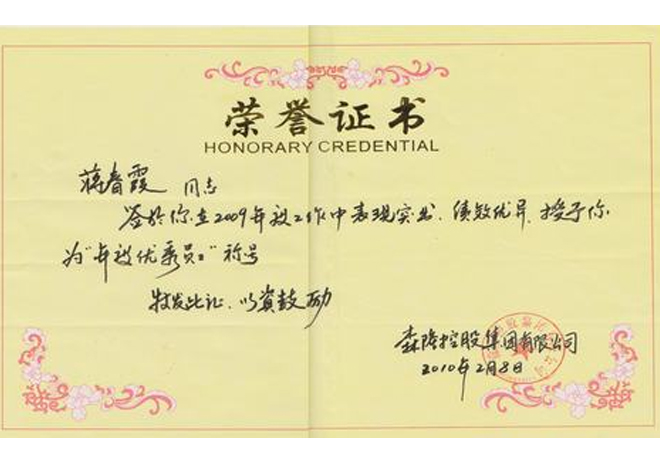 荣誉证书
HONORARY CREDENTIAL
蒋春霞 同志
鉴於你在2009年度工作中表现突出、绩效优异、授予你
为"年度优秀员工"称号
特发此证、以资鼓励
森隆控股集团有限公司
2010年2月8日